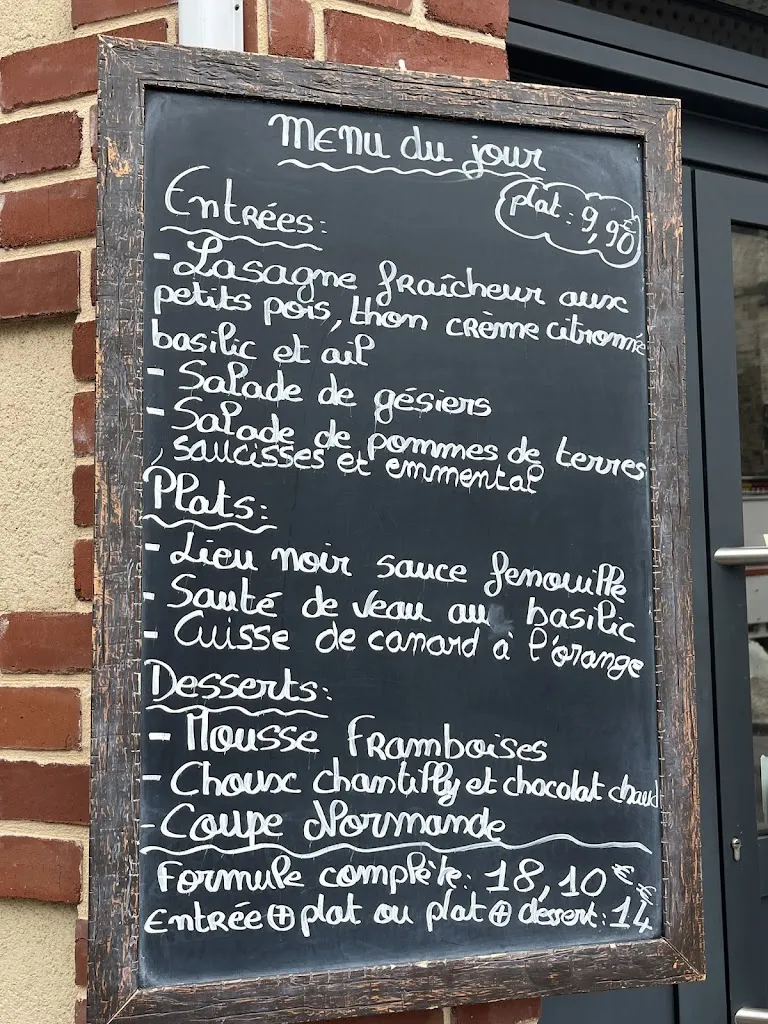 MENU du jour
plat : 9,90€
Entrées :
- Lasagne fraîcheur aux
petits pois, thon crème citronnée
basilic et ail
- Salade de gésiers
- Salade de pommes de terres
, saucisses et emmental
Plats :
- Lieu noir sauce fenouille
- Sauté de veau au basilic
- Cuisse de canard à l'orange
Desserts :
- Mousse Framboises
- Choux chantilly et chocolat chaud
- Coupe Normande
Formule complète : 18,10 €
Entrée + plat ou plat + dessert : 14€